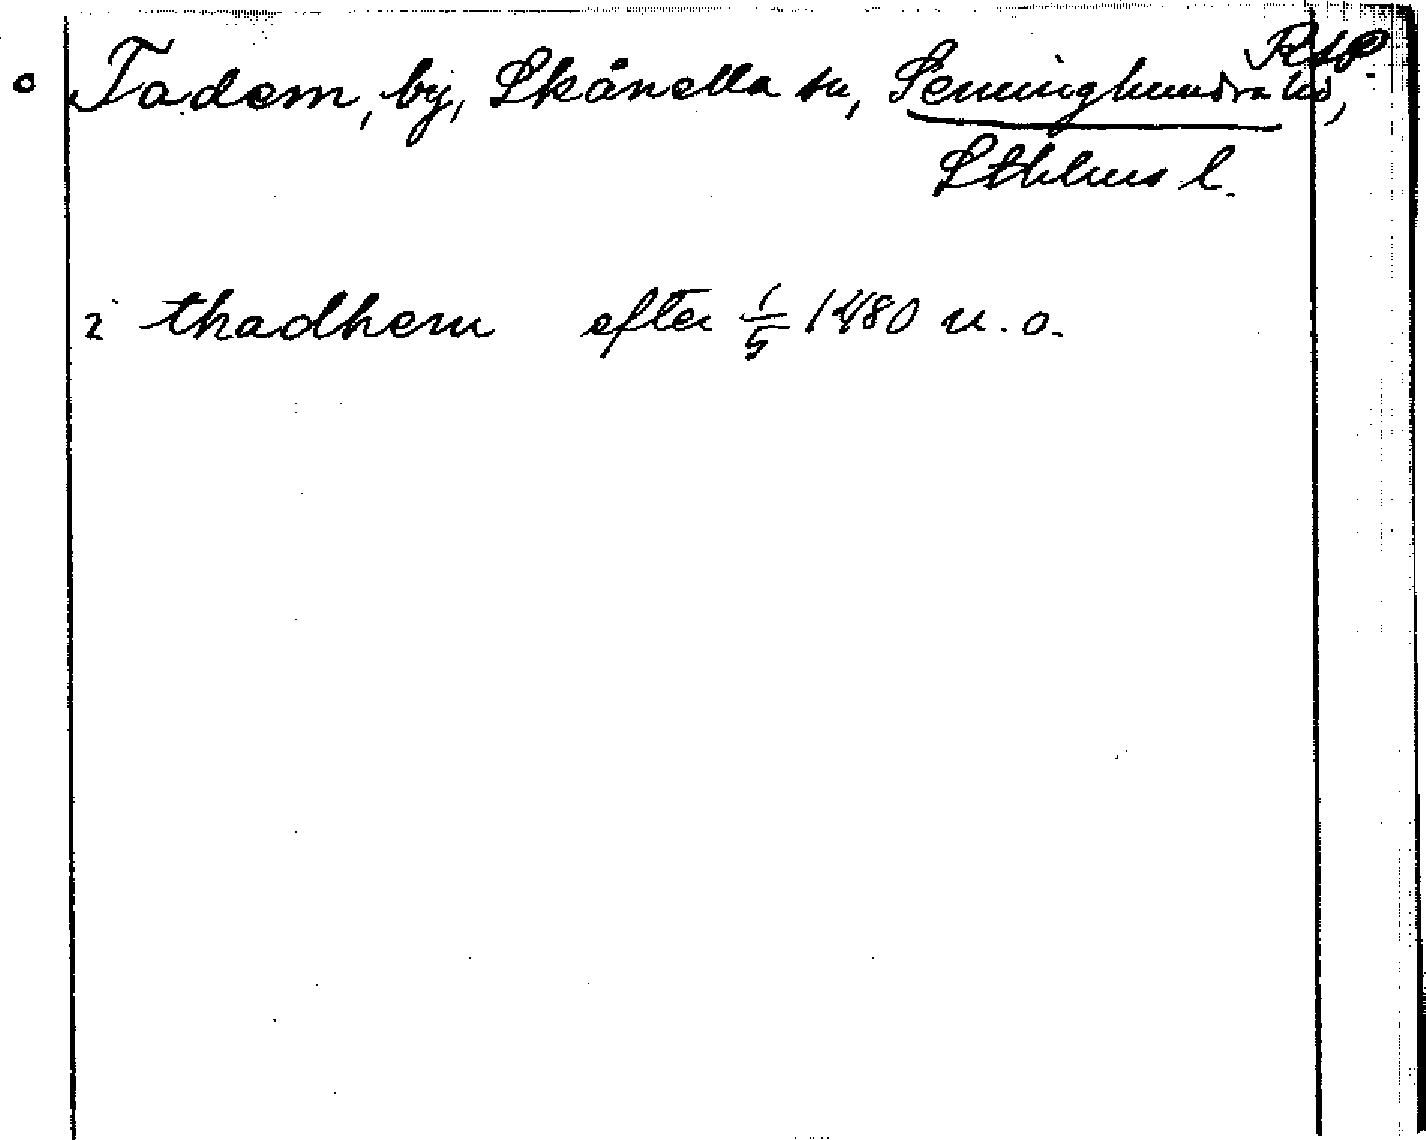 Tadem, by, Skånella sn, Seminghundra hd,
Sthlms l.
i thadhem efter 1/5 1480 n. o.